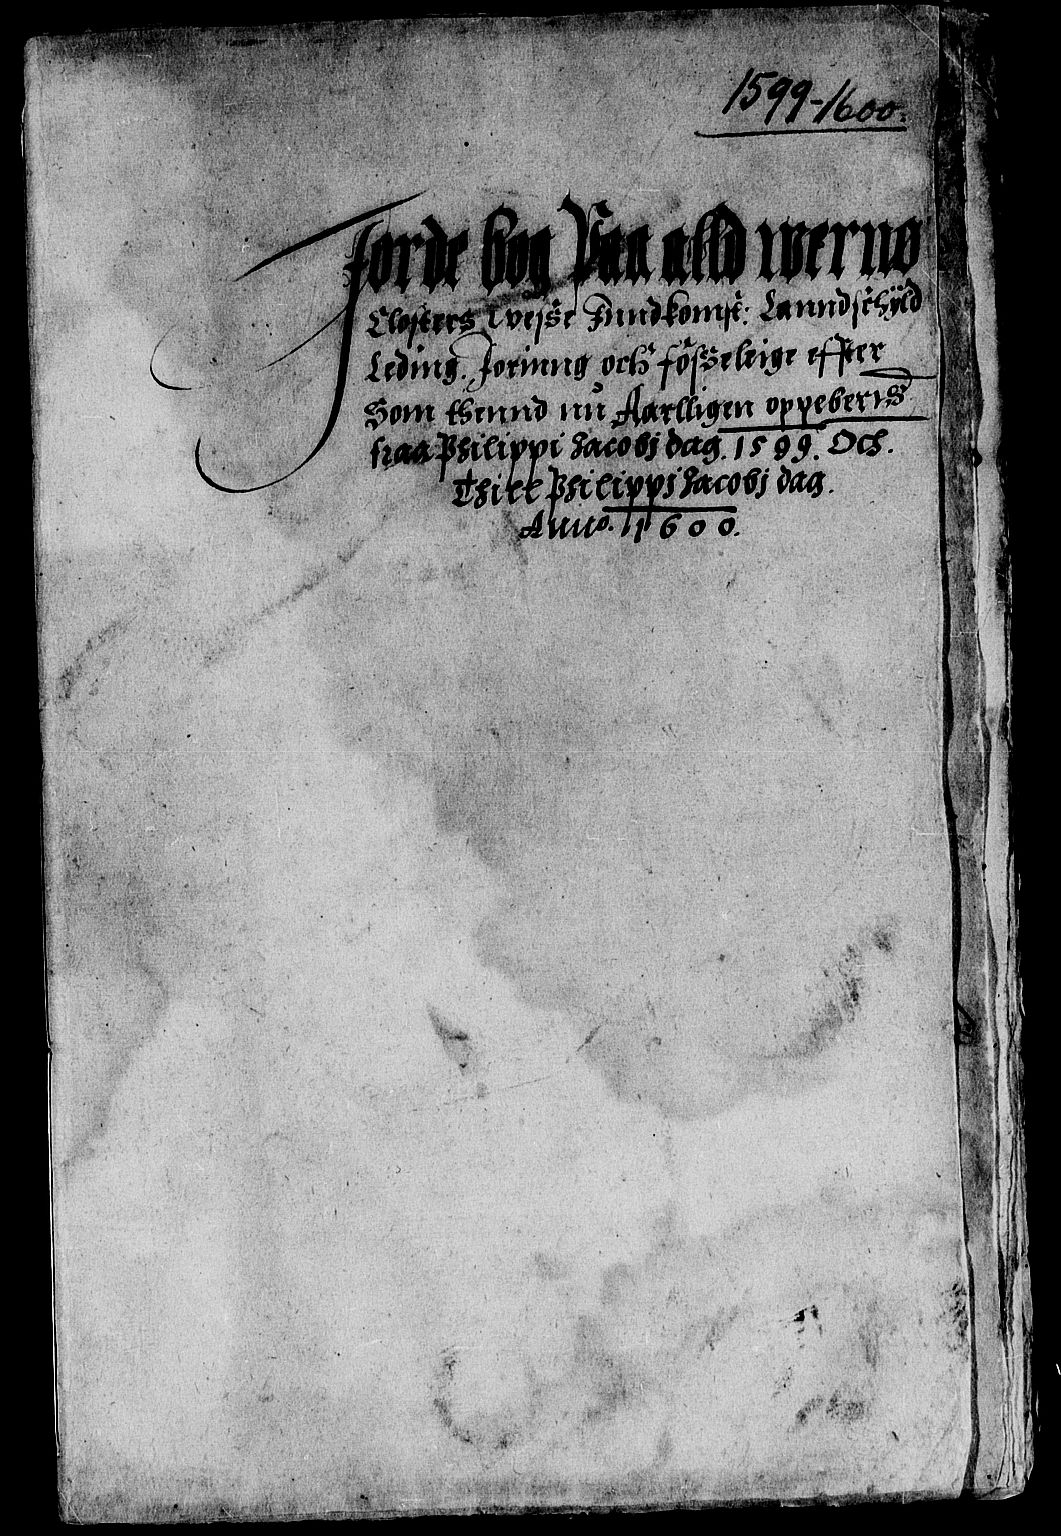 1599-1600.
Jorde bog Paa alld wernø
Closters wesse Inndkomst: Lanndschyld
Leding. Foering och fösseleige effter
Som thennd nu Aarlligen oppeberis
fraa Philippi Jacobj dag. 1599. Och.
Thill Philippj Jacobj dag.
Anno. 1600.